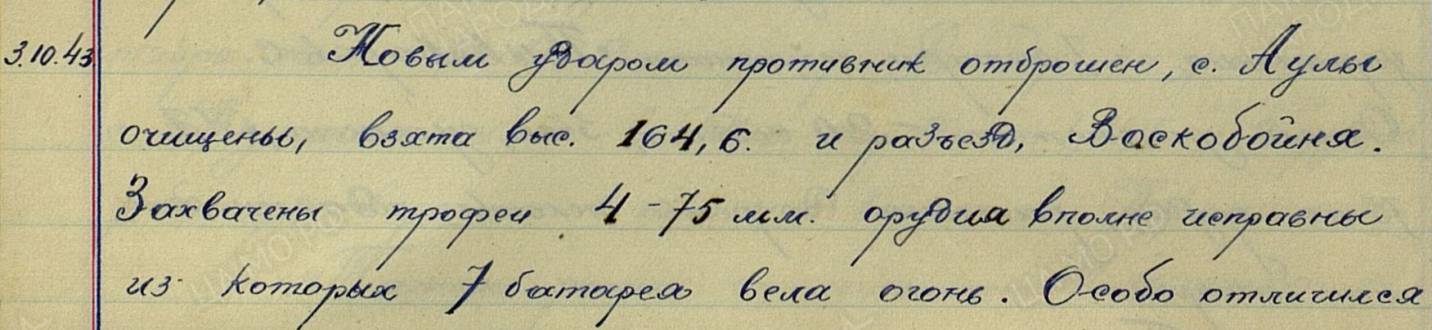 3.10.43 Новым ударом противник отброшен, с. Аулы
очищены, взята выс. 164,6. и разъезд, Воскобойня.
Захвачены трофеи 4-75 мм. орудия вполне исправны
из которых 7 батарея вела огонь. Особо отличился